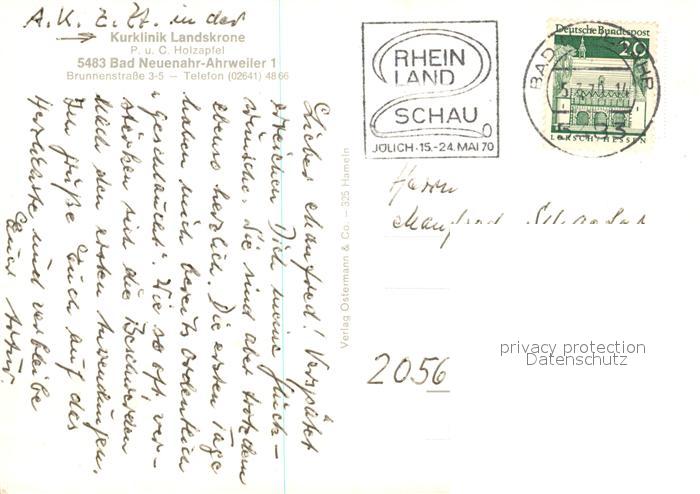 A. K. z. Zt. in der
Kurklinik Landskrone
P. u. C. Holzapfel
5483 Bad Neuenahr-Ahrweiler 1
Brunnenstraße 3-5 — Telefon (02641) 4866
Lieber Manfred! Verspätet
erreichen Dich meine Glück-
wünsche. Sie sind aber trotzdem
ebenso herzlich. Die ersten Tage
haben mich bereits ordentlich
"geschlaucht". Wie so oft, ver-
stärken sich die Beschwerden
nach den ersten Anwendungen.
Ich grüße Euch auf das
Herzlichste und verbleibe
Euer
Verlag Ostermann & Co. — 325 Hameln
RHEIN
LAND
SCHAU
JÜLICH·15.-24. MAI 70
Deutsche Bundespost
20
LORSCH/HESSEN
BAD
Herrn
Manfred
2056
privacy protection
Datenschutz